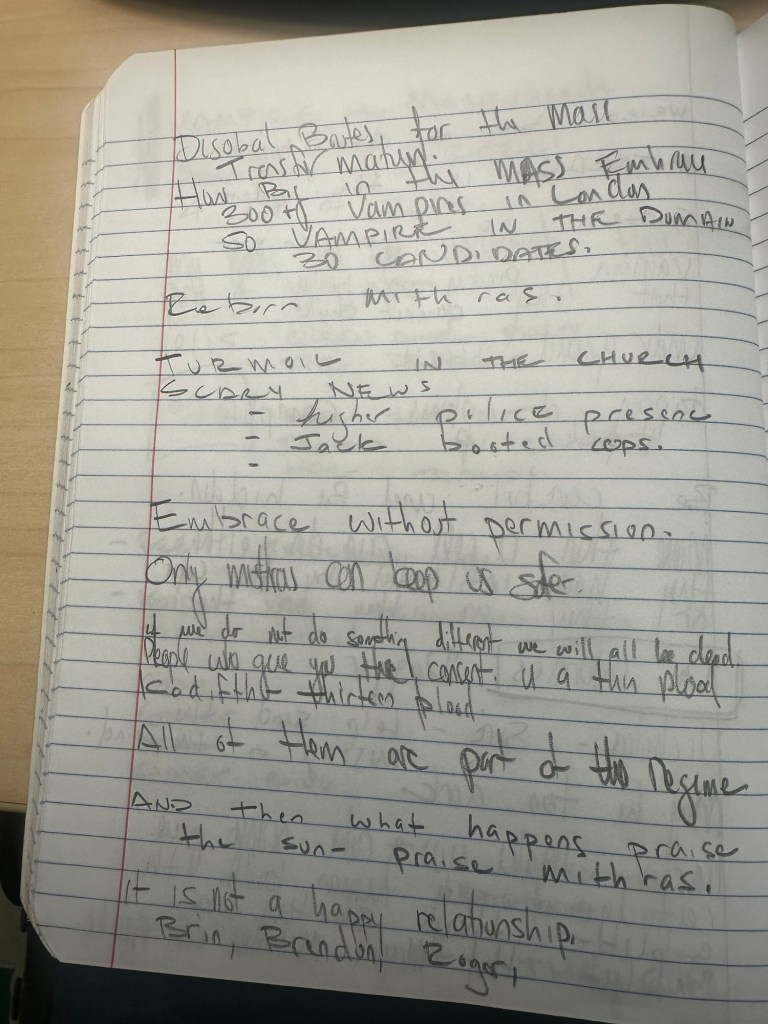 Disobal Bates, for the Mass
Transformation.
How Big in the MASS Embrace
300 of Vampires in London
50 VAMPIRE IN THE DOMAIN
30 CANDIDATES.
Reborn Mithras.
TURMOIL IN THE CHURCH
SCARY NEWS
- higher police presenc
- Jack booted cops.
-
Embrace without permission.
Only mithras can keep us safer.
if we do not do something different we will all be dead.
People who gave you the concent. is a thin blood
thirteen blood
All of them are part of the Regime
AND then what happens praise
the sun- praise mithras.
It is not a happy relationship.
Brin, Brandon, Roger,